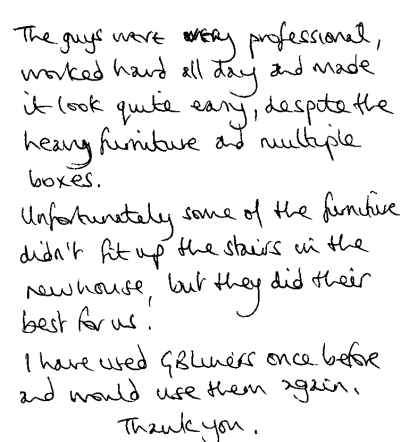 The guys were very professional,
worked hard all day and made
it look quite easy, despite the
heavy furniture and multiple
boxes.
Unfortunately some of the furniture
didn't fit up the stairs in the
new house, but they did their
best for us!
I have used GBLiners once before
and would use them again.
Thank you.